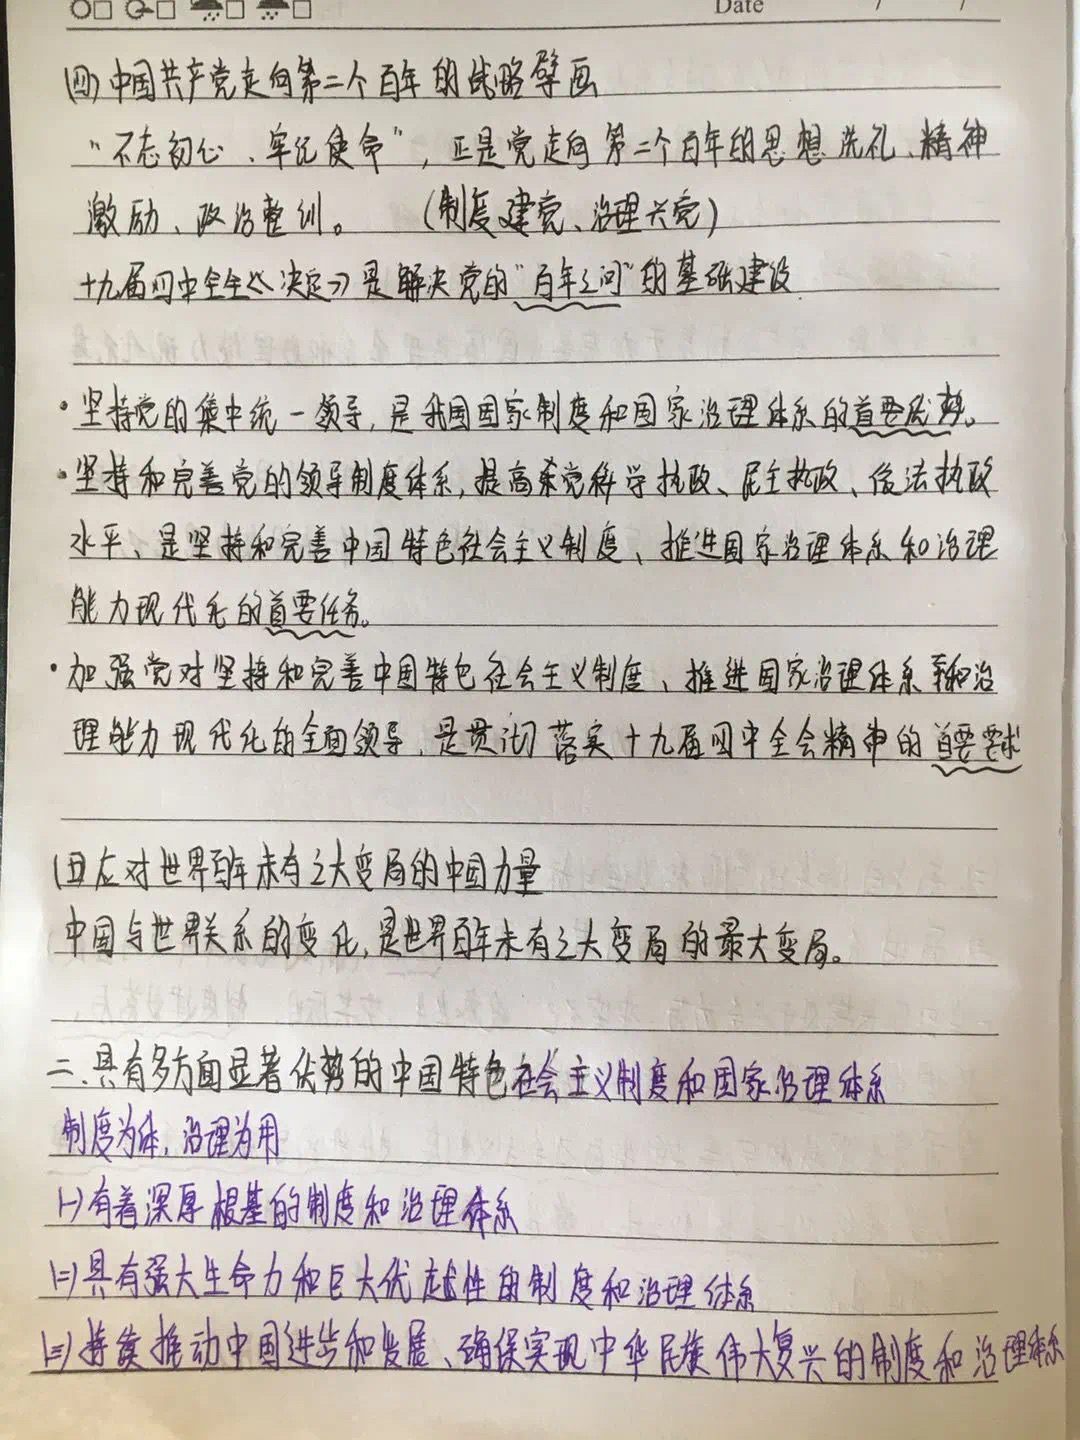 Date / /
(四)中国共产党走向第二个百年的战略擘画
“不忘初心、牢记使命”,正是党走向第二个百年的思想洗礼、精神
激励、政治整训。 (制度建党、治理兴党)
十九届四中全会《决定》是解决党的“百年之问”的基础建设
·坚持党的集中统一领导,是我国国家制度和国家治理体系的首要优势。
·坚持和完善党的领导制度体系,提高党科学执政、民主执政、依法执政
水平、是坚持和完善中国特色社会主义制度、推进国家治理体系和治理
能力现代化的首要任务。
·加强党对坚持和完善中国特色社会主义制度、推进国家治理体系和治
理能力现代化的全面领导,是贯彻落实十九届四中全会精神的首要要求
(五)应对世界百年未有之大变局的中国力量
中国与世界关系的变化,是世界百年未有之大变局的最大变局。
二、具有多方面显著优势的中国特色社会主义制度和国家治理体系
制度为体,治理为用
(一)有着深厚根基的制度和治理体系
(二)具有强大生命力和巨大优越性的制度和治理体系
(三)持续推动中国进步和发展、确保实现中华民族伟大复兴的制度和治理体系